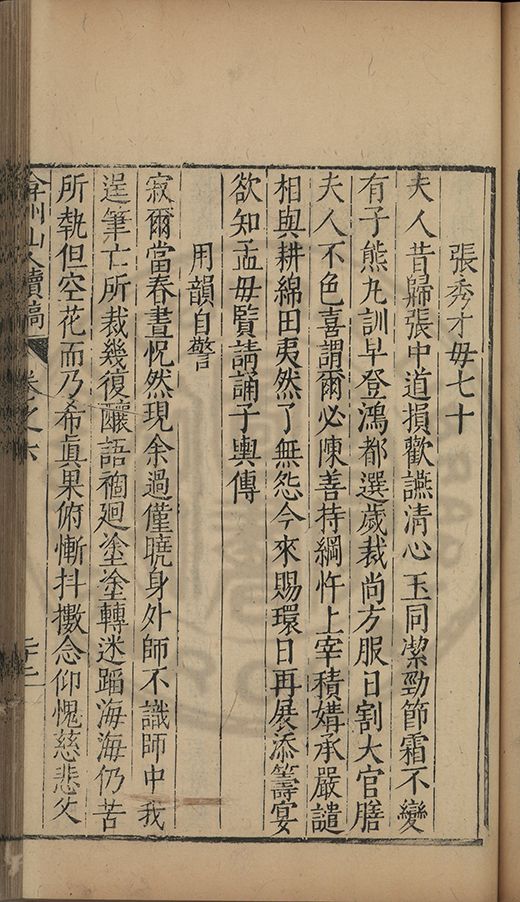 張秀才毋七十
夫人昔歸張中道損歡讌清心玉同潔勁節霜不變
有子熊丸訓早登鴻都選歲裁尚方服日割大官膳
夫人不色喜謂爾必陳善持綱忤上宰積媾承嚴譴
相與耕綿田夷然了無怨今來賜環日再展添籌宴
欲知孟毋賢請誦子輿傳
用韻自警
寂爾當春晝怳然現余過僅曉身外師不識師中我
逞筆亡所裁幾復釀語禍廻塗塗轉迷蹈海海仍苦
所執但空花而乃希真果俯慚抖擻念仰愧慈悲父
弇州山人續稿
卷之六